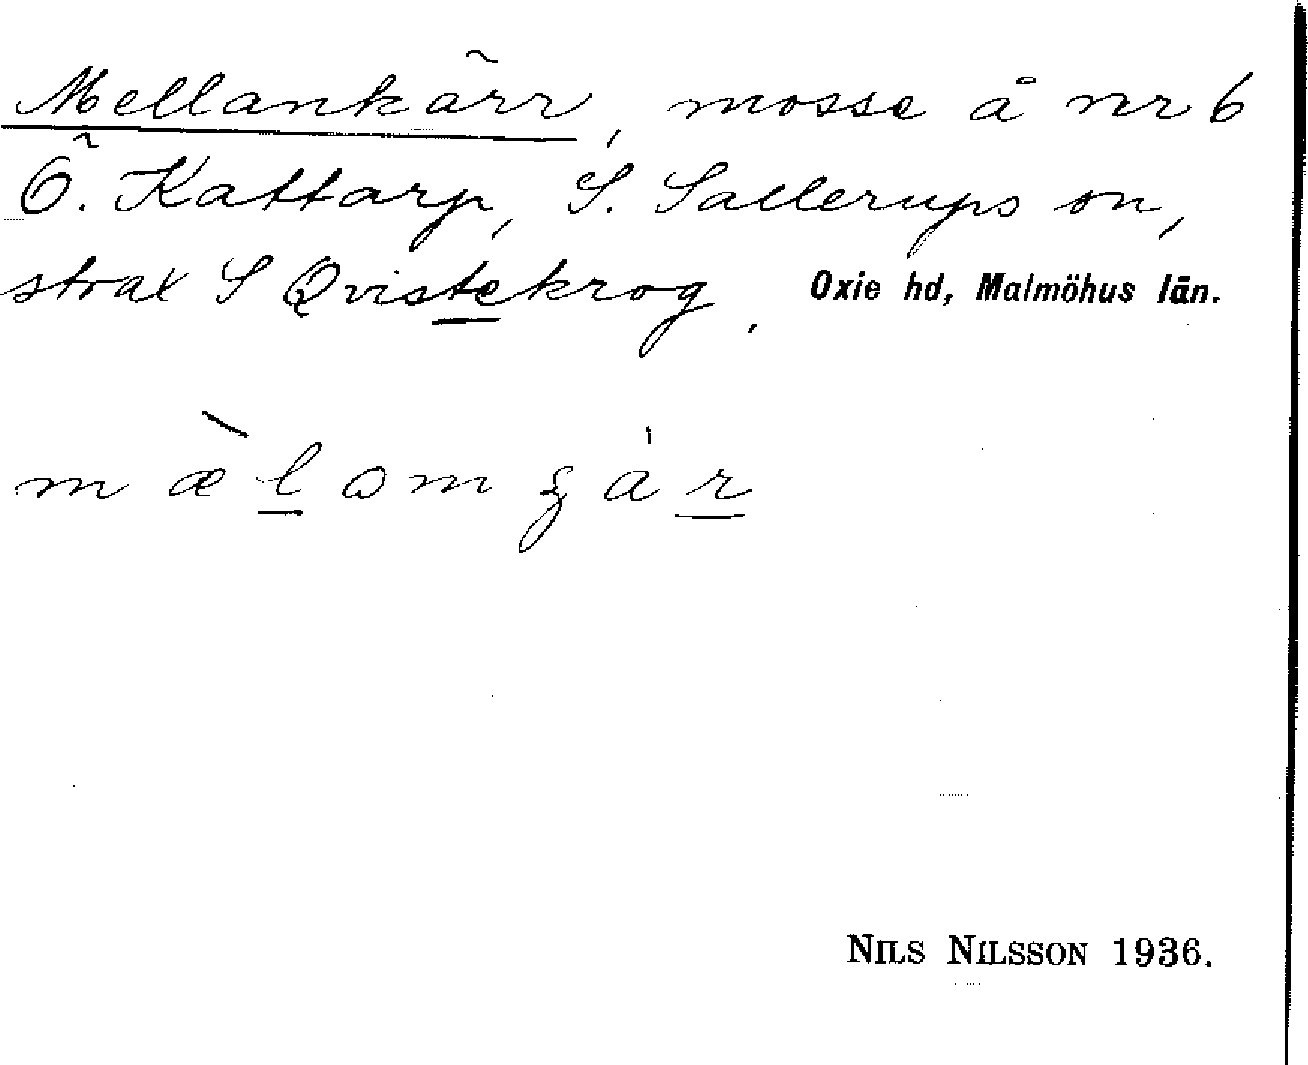 Mellankärr, mosse å nr 6
Ö. Kattarp, S. Sallerups sn,
strax S Qvistekrog, Oxie hd, Malmöhus län.
mæ̀lamgàr
NILS NILSSON 1936.